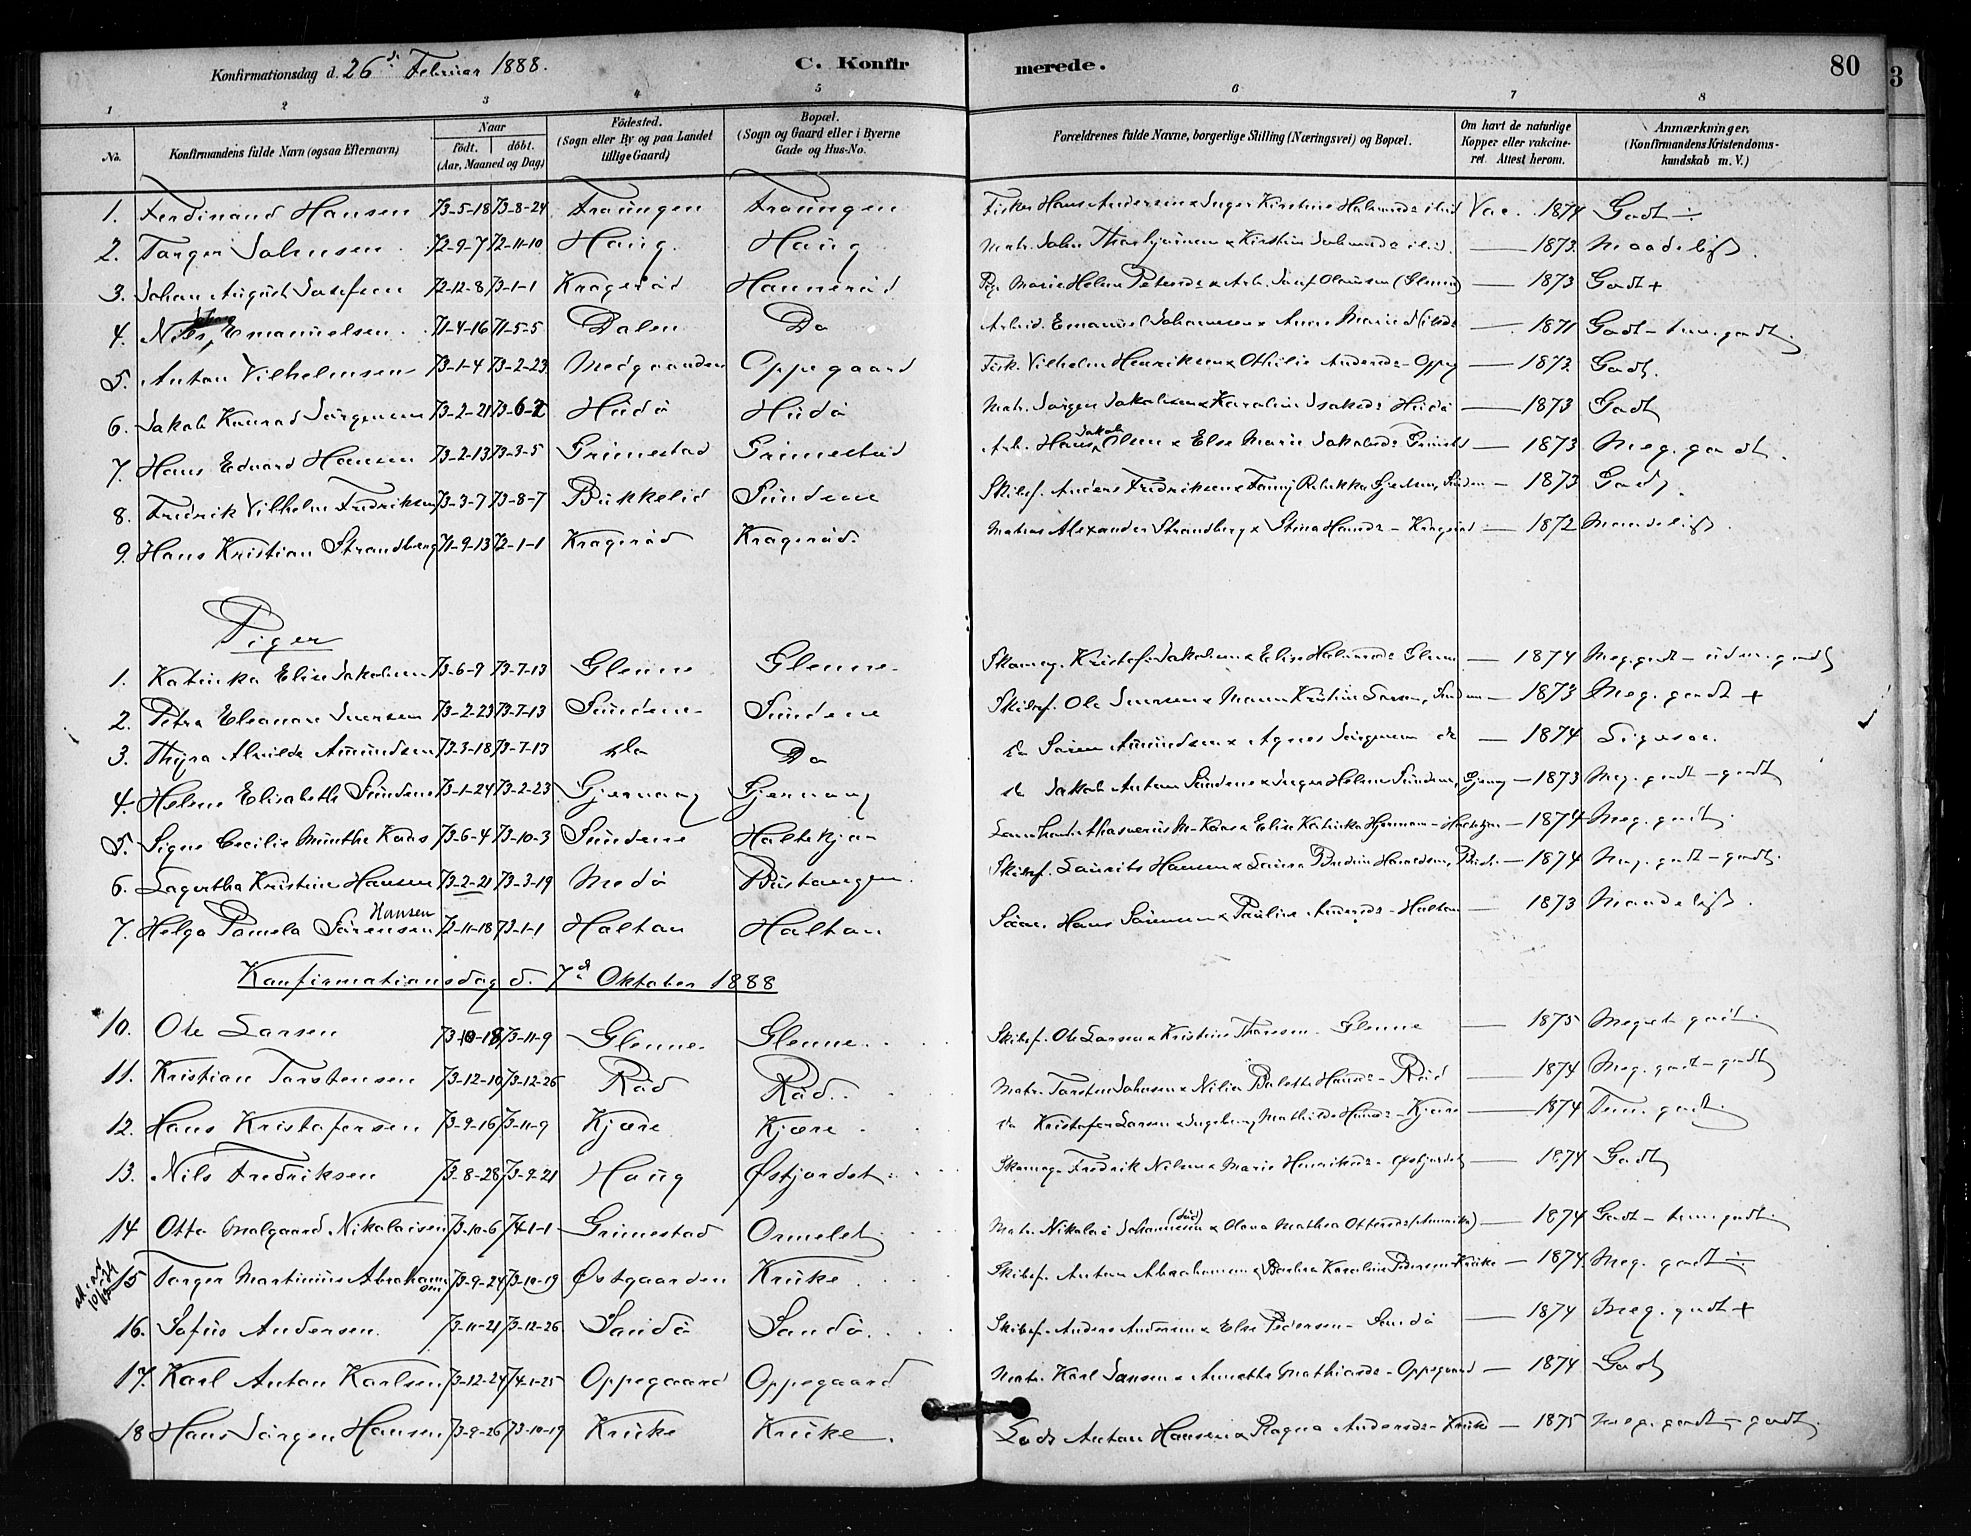 Konfirmationsdag d. 26d Februar 1888. C. Konfirmerede. 80
3
1 2 3 4 5 6 7 8
No. Konfirmandens fulde Navn (ogsaa Efternavn) Naar født. døbt. (Aar, Maaned og Dag) Fødested. (Sogn eller By og paa Landet tillige Gaard) Bopæl. (Sogn og Gaard eller i Byerne Gade og Hus-No. Forældrenes fulde Navne, borgerlige Stilling (Næringsvei) og Bopæl. Om havt de naturlige Kopper eller vakcineret. Attest herom. Anmærkninger, (Konfirmandens Kristendomskundskab m. V.)
1. Ferdinand Hansen 73-5-18 73-8-24 Traungen Traungen Fisker Hans Andersen x Inger Kirstine Vac. 1874 Godt ÷
2. Torger Johnsen 72-9-7 72-11-10 Haug Haug Matr. John — 1873 Maadeligt.
3. Johan August Josefsen 72-12-8 73-1-1 Kragerød Hannerød Pg. Marie Helene Petersdr x Arb. Josef Olausen (Glenne) — 1873 Godt +
4. Nils Johan Emanuelsen 71-4-16 71-5-5 Dalen Do Arbeid. Emanuel Johannesen x Anne Marie Nilsdr — 1871 Godt - tem. godt
5. Anton Vilhelmsen 73-1-4 73-2-23 Medgaarden Oppegaard Fisk. Vilhelm Henriksen x Othilie Andersdr - Oppeg — 1873 Godt.
6. Jakob Konrad Jørgensen 73-2-21 73-6-2 Hudø Hudø Matr. Jørgen Jakobsen x Karoline Isaksdr Hudø — 1873 Godt
7. Hans Edvard Hansen 73-2-13 73-3-5 Grimestad Grimestad Arb. Hans Jakob Olsen x Else Marie Jakobsdr Grimestd — 1873 Meg. godt.
8. Fredrik Vilhelm Fredriksen 73-3-7 73-8-7 Bukkelid Sundene Skibsf. Anders Fredriksen x Fanny Rebekka Sunden — 1873 Godt.
9. Hans Kristian Strandberg 71-9-13 72-1-1 Kragerød Kragerød Matros Alexander Strandberg x Stina Hansdr - Kragerød — 1872 Maadeligt.
Piger
1. Katinka Elise Jakobsen 73-6-9 73-7-13 Glenne Glenne Skomag. Kristof. Jakobsen x Elise Glenne — 1874 Meg. godt - udm. godt
2. Petra Eleonore Iversen 73-2-23 73-7-13 Sundene Sundene Skibsf. Ole Iversen x Maren Kristine Larsen, Sunden — 1873 Meg. godt +
3. Thyra Alvilde Amundsen 73-3-18 73-7-13 do Do do Søren Amundsen x Agnes Jørgensen do — 1874 Ligesaa.
4. Helene Elisabeth Sundene 73-1-24 73-2-23 Gjernang Gjernang do Jakob Anton Sundene x Inger Helene Sundene, Gjerng — 1873 Meg. godt - godt
5. Signe Cecilie Munthe Kaas 73-6-4 73-10-3 Sundene Holtekjær Ahasverus M. Kaas x Elise Katinka Hermann - Holtekjær — 1874 Meg. godt.
6. Lagertha Kristine Hansen 73-2-21 73-3-19 Medø Bustangen Skibsf. Laurits Hansen x Laura — 1874 Meg. godt - godt.
7. Helga Pamela Sørensen Hansen 72-11-18 73-1-1 Holtan Holtan Hans Sørensen x Pauline Andersdr - Holtan — 1873 Maadeligt.
Konfirmationsdag d. 7d Oktober 1888
10. Ole Larsen 73-10-18 73-11-9 Glenne Glenne Skibsf. Ole Larsen x Kristine Thorsen - Glenne — 1875 Meget godt.
11. Kristian Torstensen 73-12-10 73-12-26 Rød Rød. Matr. Torsten Johnsen x Nilia Bolette Hansdr - Rød — 1874 Meg. godt - godt
12. Hans Kristofersen 73-9-16 73-11-9 Kjære Kjære do Kristofer Larsen x Ingeborg Mathilde Hansdr - Kjære — 1874 Tem. godt.
13. Nils Fredriksen 73-8-28 73-9-21 Haug Østjordet Skomag. Fredrik Nilsen x Marie Henriksdr - Østjordet — 1874 Godt
14 Otto Malgaard Nikolaisen 73-10-6 74-1-1 Grimestad Ormelet Matr. Nikolai Johannesen (død) x Olava Mathea Ottersdr (Amerika) — 1874 Godt - tem. godt.
15 Torger Martinius Abrahamsen 73-9-24 73-10-19 Østgaarden Kruke Skibsf. Anton Abrahamsen x Barbra Karoline Pedersen - Kruke — 1874 Meg. godt ÷
16. Sofus Andersen. 73-11-21 73-12-26 Sandø Sandø. Skibsf. Anders Andersen x Else Pedersen - Sandø — 1874 Meg. godt +
17. Karl Anton Karlsen 73-12-24 74-1-25 Oppegaard Oppegaard Matr. Karl Jansen x Annette Mathiasdr - Oppegaard — 1874 Godt
18 Hans Jørgen Hansen 73-9-26 73-10-19 Kruke Kruke. Lods Anton Hansen x Ragna Andersdr - Kruke — 1875 Meg. godt - godt.